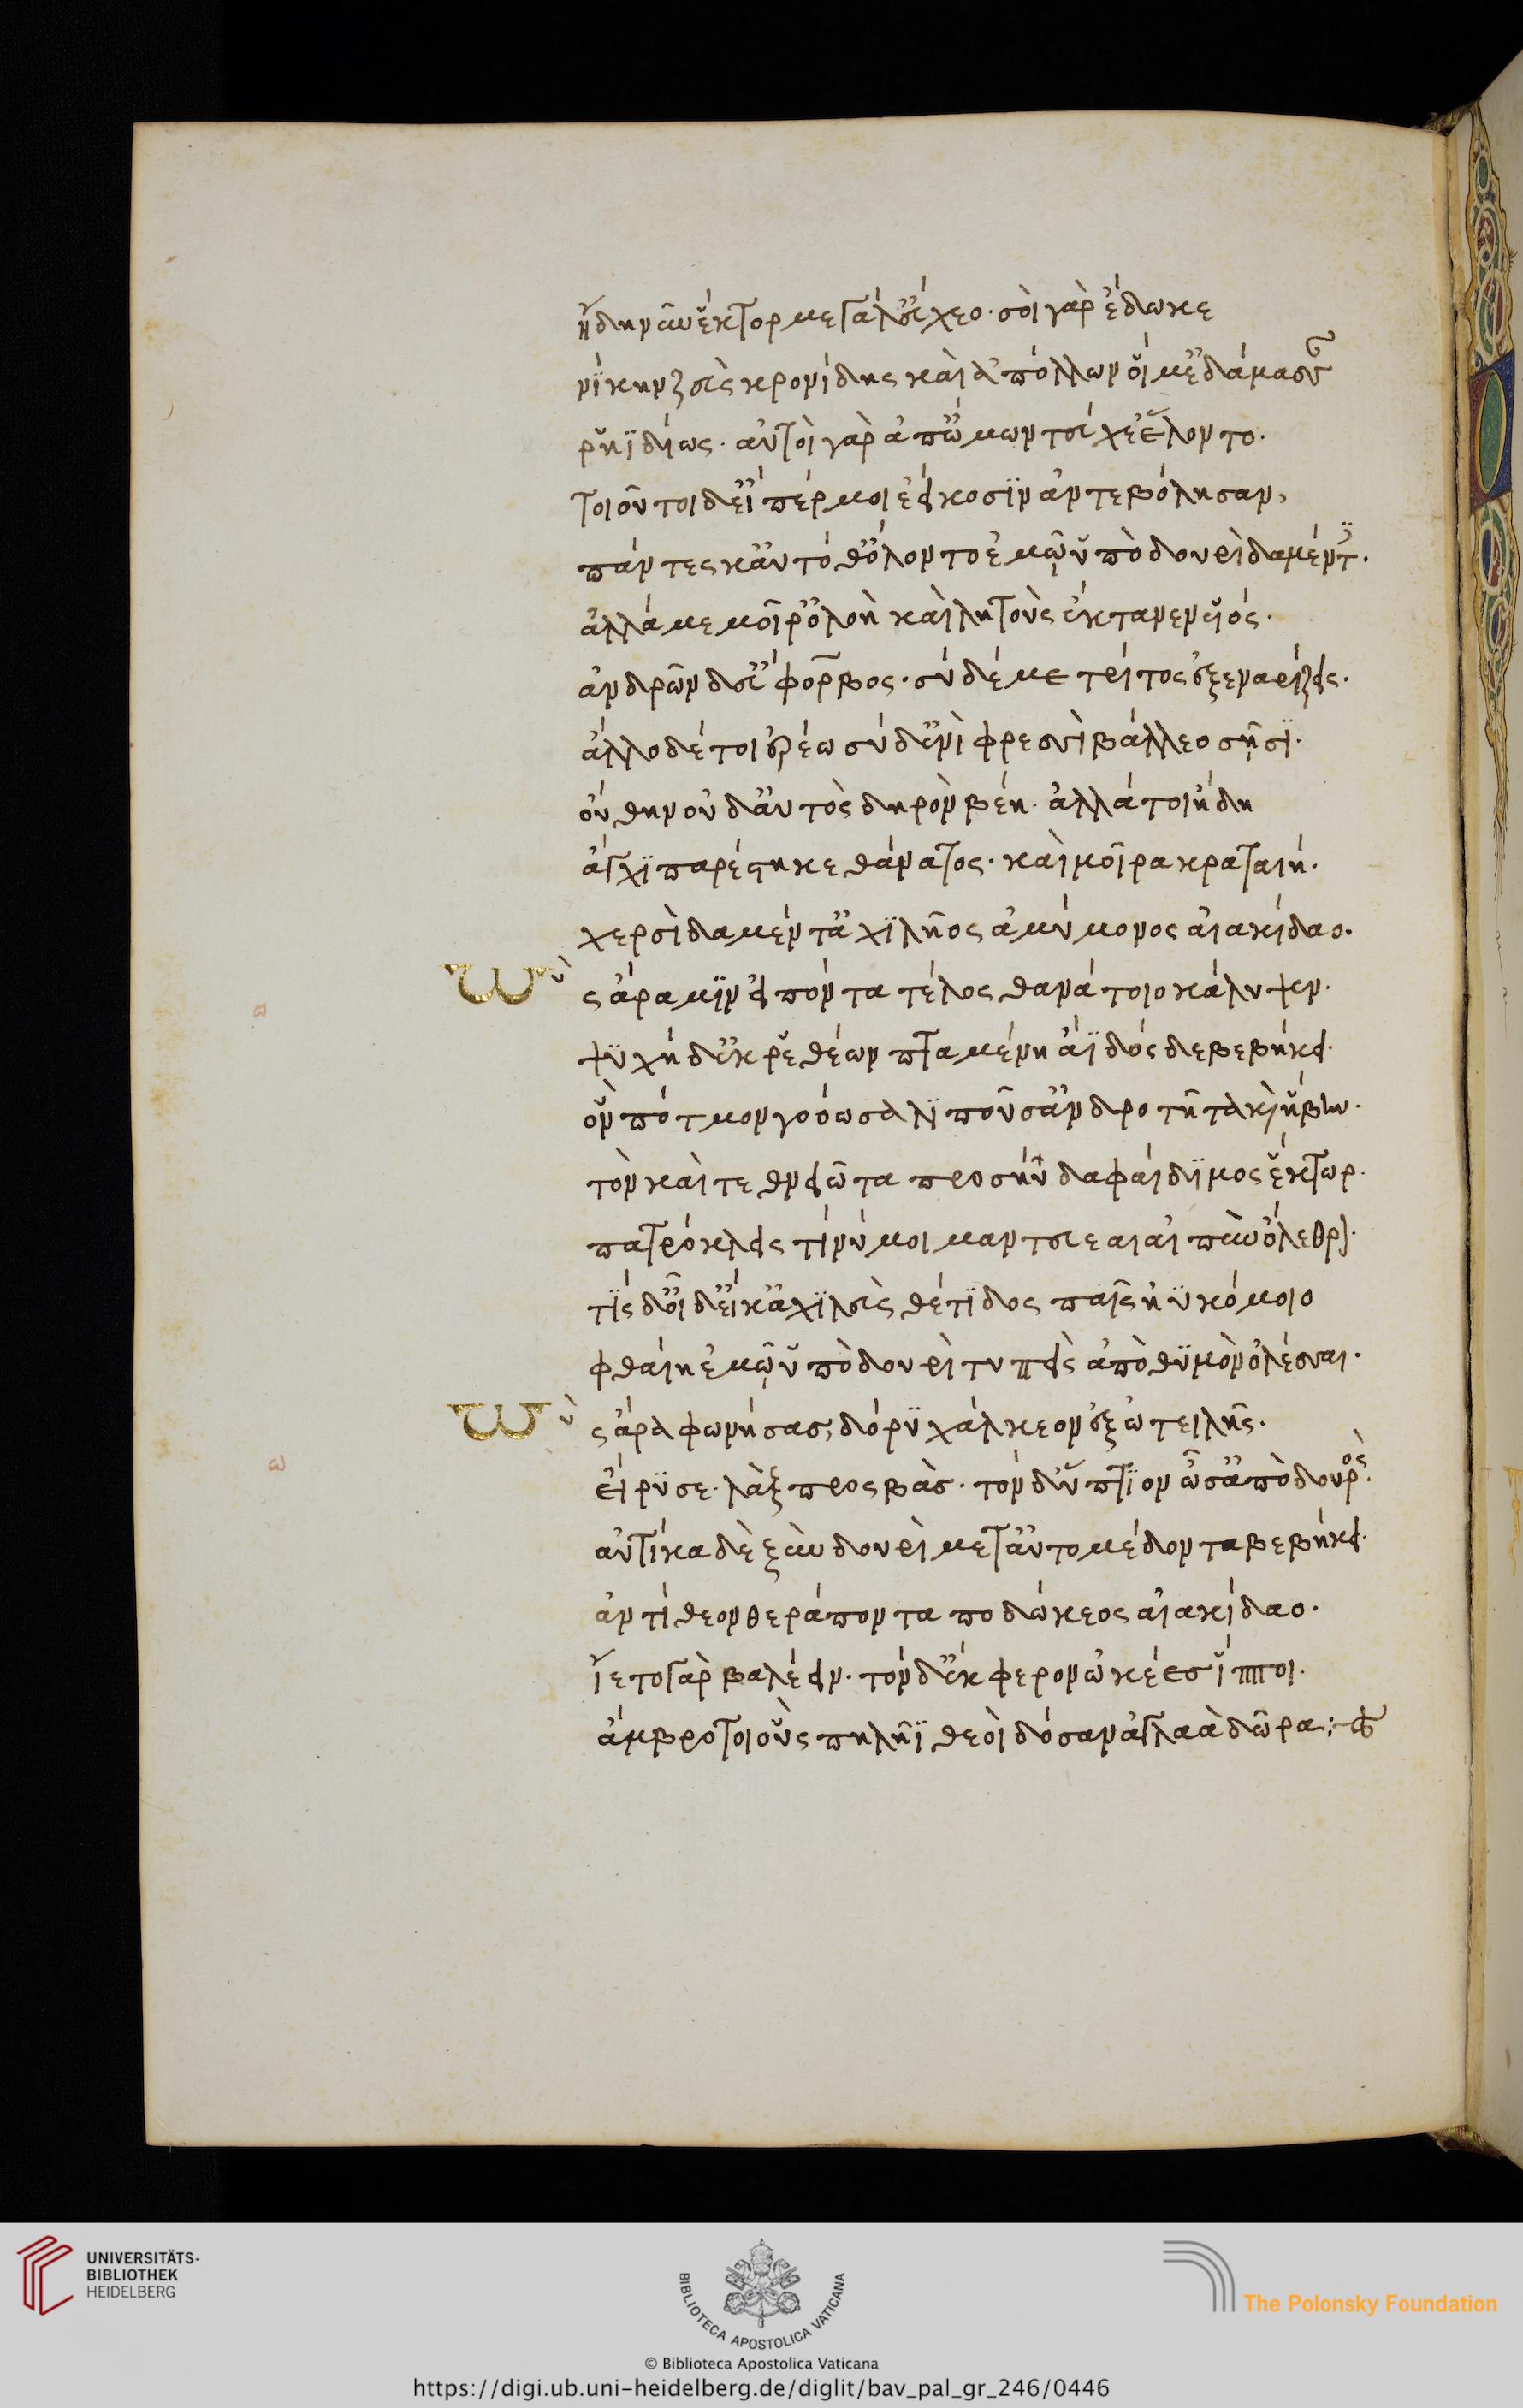 ἤδη νῦν ἕκτορ μεγάλ' εὔχεο· σοὶ γὰρ ἔδωκε
νίκην ζεὺς κρονίδης καὶ ἀπόλλων οἵ μ' ἐδάμασαν
ῥηϊδίως· αὐτοὶ γὰρ ἀπ' ὤμων τεύχε' ἕλοντο.
τοιοῦτοι δ' εἴπέρ μοι ἐείκοσιν ἀντεβόλησαν,
πάντες κ' αὐτόθ' ὄλοντο ἐμῷ ὑπὸ δουρὶ δαμέντες.
ἀλλά με μοῖρ' ὀλοὴ καὶ λητοῦς ἔκτανεν υἱός.
ἀνδρῶν δ' εὔφορβος· σὺ δέ με τρίτος ἐξεναρίζεις.
ἄλλο δέ τοι ἐρέω σὺ δ' ἐνὶ φρεσὶ βάλλεο σῇσι.
οὔ θην οὐδ' αὐτὸς δηρὸν βέῃ· ἀλλά τοι ἤδη
ἄγχι παρέστηκε θάνατος· καὶ μοῖρα κραταιή.
χερσὶ δαμέντ' ἀχιλῆος ἀμύμονος αἰακίδαο.
ὣς ἄρα μιν εἰπόντα τέλος θανάτοιο κάλυψεν.
ψυχὴ δ' ἐκ ῥεθέων πταμένη ἄϊδός δε βεβήκει.
ὃν πότμον γοόωσα λιποῦσ' ἀνδροτῆτα καὶ ἥβην.
τὸν καὶ τεθνειῶτα προσηύδα φαίδιμος ἕκτωρ.
πατρόκλεις τί νύ μοι μαντεύεαι αἰπὺν ὄλεθρον.
τίς δ' οἶδ' εἴ κ' ἀχιλεὺς θέτιδος παῖς ἠϋκόμοιο
φθαίη ἐμῷ ὑπὸ δουρὶ τυπεὶς ἀπὸ θυμὸν ὀλέσσαι.
ὣς ἄρα φωνήσας, δόρυ χάλκεον ἐξ ὠτειλῆς.
εἴρυσε· λὰξ προςβάς· τὸν δ' ὕπτιον ὦσ' ἀπὸ δουρός.
αὐτίκα δὲ ξὺν δουρὶ μετ' αὐτομέδοντα βεβήκει.
ἀντίθεον θεράποντα ποδώκεος αἰακίδαο.
ἵετο γὰρ βαλέειν· τὸν δ' ἔκφερον ὠκέες ἵπποι.
ἄμβροτοι οὓς πηλῆϊ θεοὶ δόσαν ἀγλαὰ δῶρα:
ω
ω
UNIVERSITÄTS-
BIBLIOTHEK
HEIDELBERG
BIBLIOTECA APOSTOLICA VATICANA
The Polonsky Foundation
© Biblioteca Apostolica Vaticana
https://digi.ub.uni-heidelberg.de/diglit/bav_pal_gr_246/0446